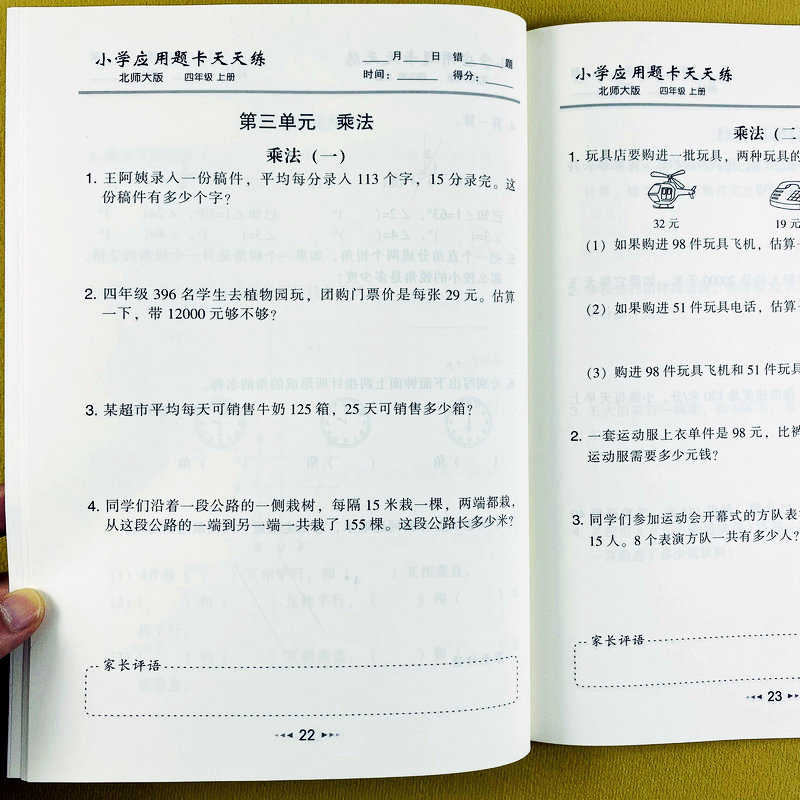 小学应用题卡天天练
北师大版 四年级 上册
月 日 错 题
时间： 得分：
第三单元 乘法
乘法（一）
1. 王阿姨录入一份稿件，平均每分录入 113 个字，15 分录完。这
份稿件有多少个字？
2. 四年级 396 名学生去植物园玩，团购门票价是每张 29 元。估算
一下，带 12000 元够不够？
3. 某超市平均每天可销售牛奶 125 箱，25 天可销售多少箱？
4. 同学们沿着一段公路的一侧栽树，每隔 15 米栽一棵，两端都栽，
从这段公路的一端到另一端一共栽了 155 棵。这段公路长多少米？
家长评语
22
小学应用题卡天天练
北师大版 四年级 上册
乘法（二
1. 玩具店要购进一批玩具，两种玩具的
32 元
19 元
（1）如果购进 98 件玩具飞机，估算一
（2）如果购进 51 件玩具电话，估算一
（3）购进 98 件玩具飞机和 51 件玩具
2. 一套运动服上衣单件是 98 元，比裤
运动服需要多少元钱？
3. 同学们参加运动会开幕式的方队表
15 人。8 个表演方队一共有多少人？
家长评语
23